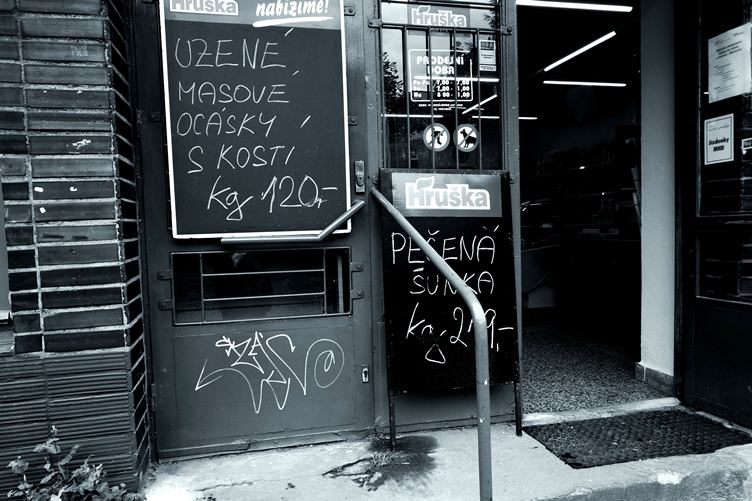 Hruška
nabízíme!
UZENÉ
MASOVÉ
OCÁSKY
S KOSTÍ
kg 120,-
Hruška
PRODEJNÍ
DOBA
Hruška
PEČENÁ
ŠUNKA
kg 219,-
Jízdenky
MHD